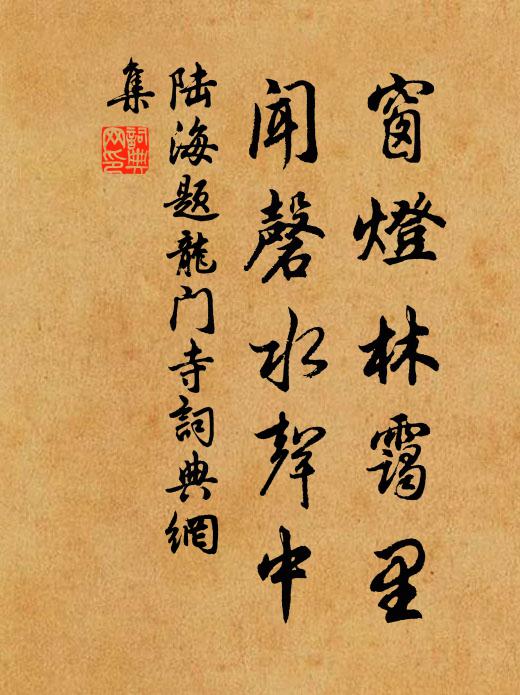 窗燈林靄里
闻磬水聲中
陆海题龍门寺詞典網
集
詞典
网印